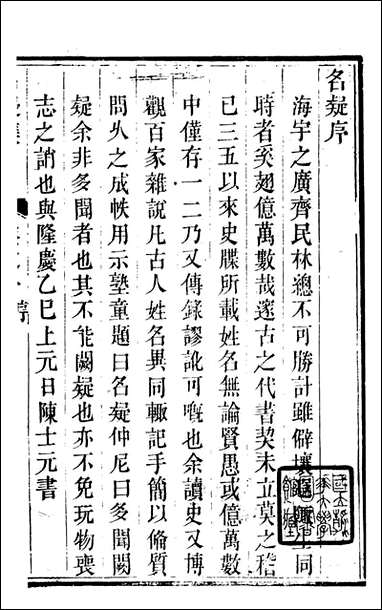 名疑序
海宇之廣齊民林總不可勝計雖僻壤同
時者奚翅億萬數哉邃古之代書契未立莫之稽
已三五以來史牒所載姓名無論賢愚或億萬數
中僅存一二乃又傳錄謬訛可嘅也余讀史又博
觀百家雜說凡古人姓名異同輒記手簡以俻質
問久之成帙用示塾童題曰名疑仲尼曰多聞闕
疑余非多聞者也其不能闕疑也亦不免玩物喪
志之誚也與隆慶乙巳上元日陳士元書
序